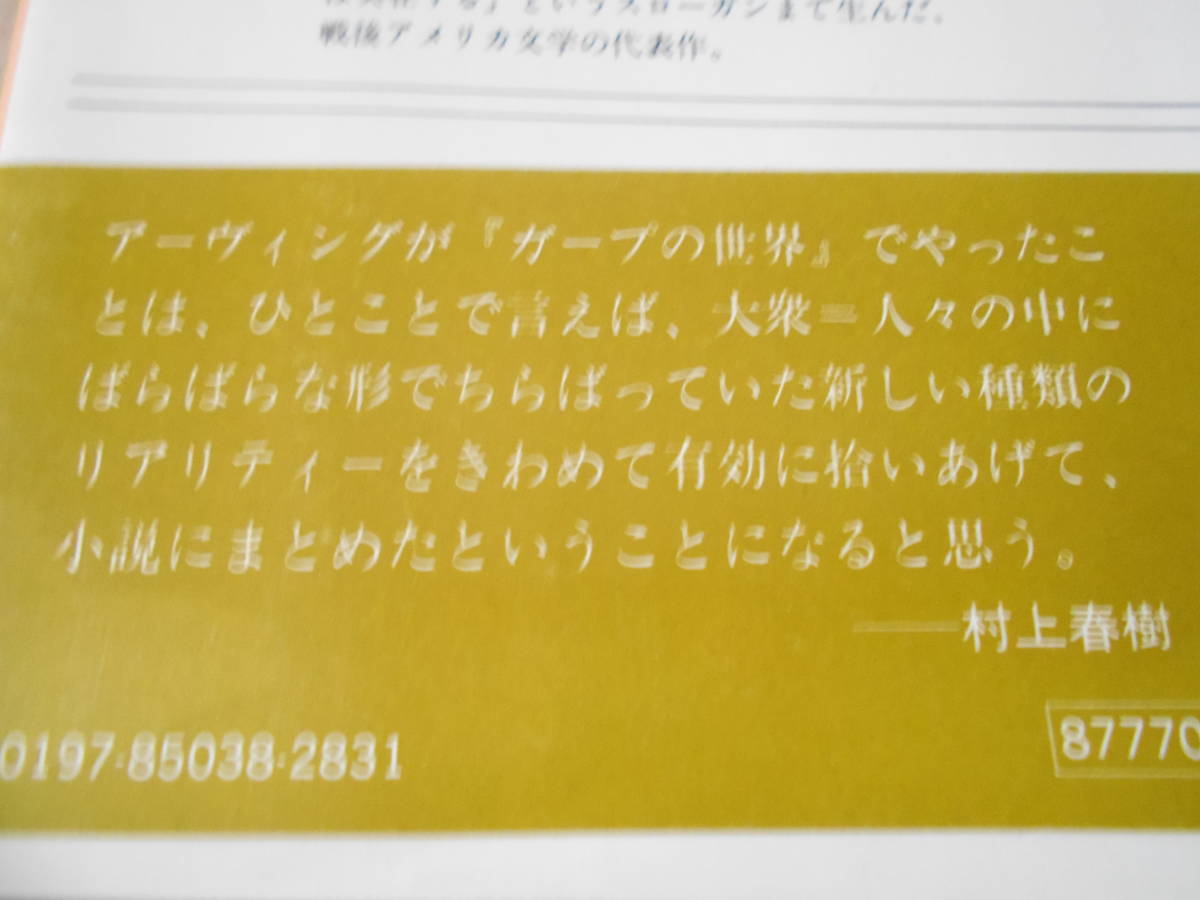 というスローガンまで生んだ、
戦後アメリカ文学の代表作。
アーヴィングが『ガープの世界』でやったこ
とは、ひとことで言えば、大衆＝人々の中に
ばらばらな形でちらばっていた新しい種類の
リアリティーをきわめて有効に拾いあげて、
小説にまとめたということになると思う。
──村上春樹
0197-85038-2831
87770